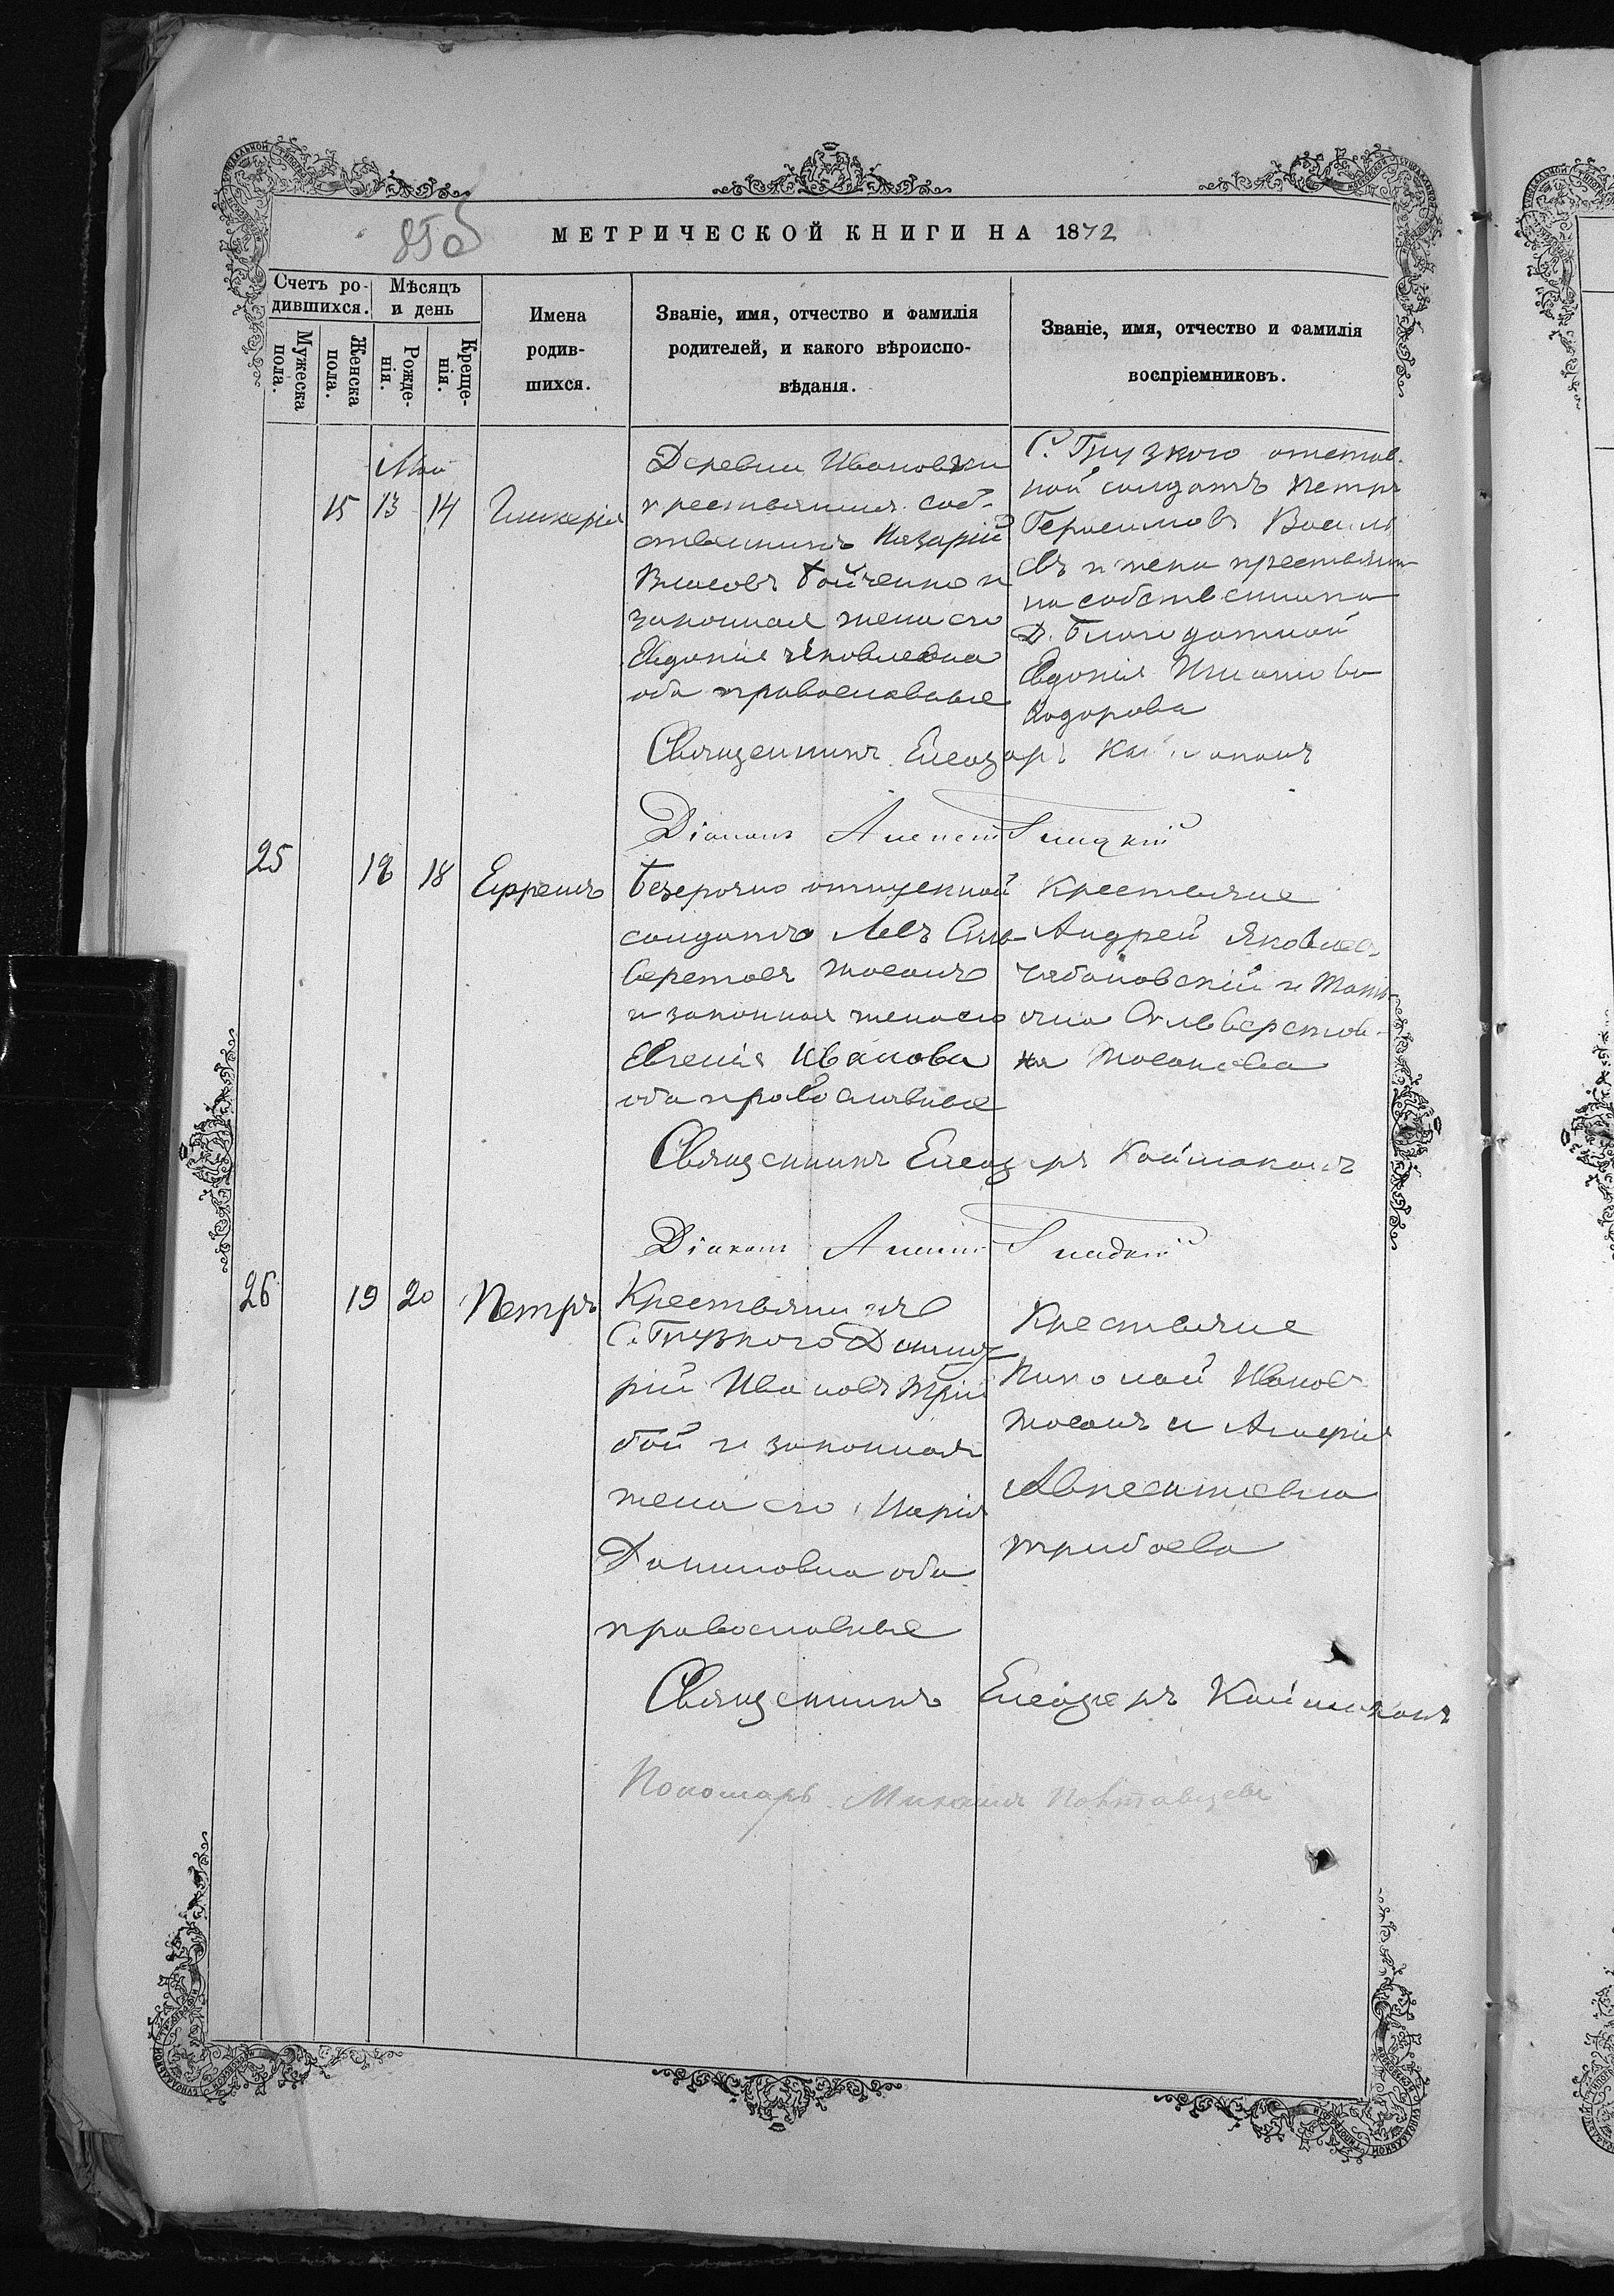 85об
МЕТРИЧЕСКОЙ КНИГИ НА 1872
Счетъ ро-
дившихся.
Мѣсяцъ
и день
Мужеска
пола.
Женска
пола.
Рожде-
нія.
Креще-
нія.
Имена
родив-
шихся.
Званіе, имя, отчество и фамилія
родителей, и какого вѣроиспо-
вѣданія.
Званіе, имя, отчество и фамилія
воспріемниковъ.
Май
15 13 14 Гликерія
Деревни Ивановки
крестьянинъ соб-
ственникъ Назарій
Власовъ Бойченко и
законная жена его
Евдокія Яковлевна
оба православные
С. Грузкого отстав-
ной солдатъ Петръ
Герасимовъ Василь
евъ и жена крестьяни-
на собственника
Д. Благодатной
Евдокія
Ѳодорова
Священникъ Елеазаръ Каймаканъ
Діаконъ Гладкій
25 18 Ефремъ
Безсрочно отпускной
солдатъ Левъ Силь-
верстовъ Жосанъ
и законная жена его
Евгенія Иванова
оба православные
Крестьяне
Андрей Яковлев.
Чабановскій и Тать-
яна Сильверстов-
на Жосанова
Священникъ Елеазаръ Каймаканъ
Діаконъ Гладкій
26 19 20 Петръ
Крестьянинъ
С. Грузкого Димит
рій Ивановъ Три
бой и законная
жена его Марія
Данииловна оба
православные
Крестьяне
Николай Иванов
Жосанъ и
Авксентіевна
Трибоева
Священникъ Елеазаръ Каймаканъ
Пономарь Михаилъ Полтавцевъ